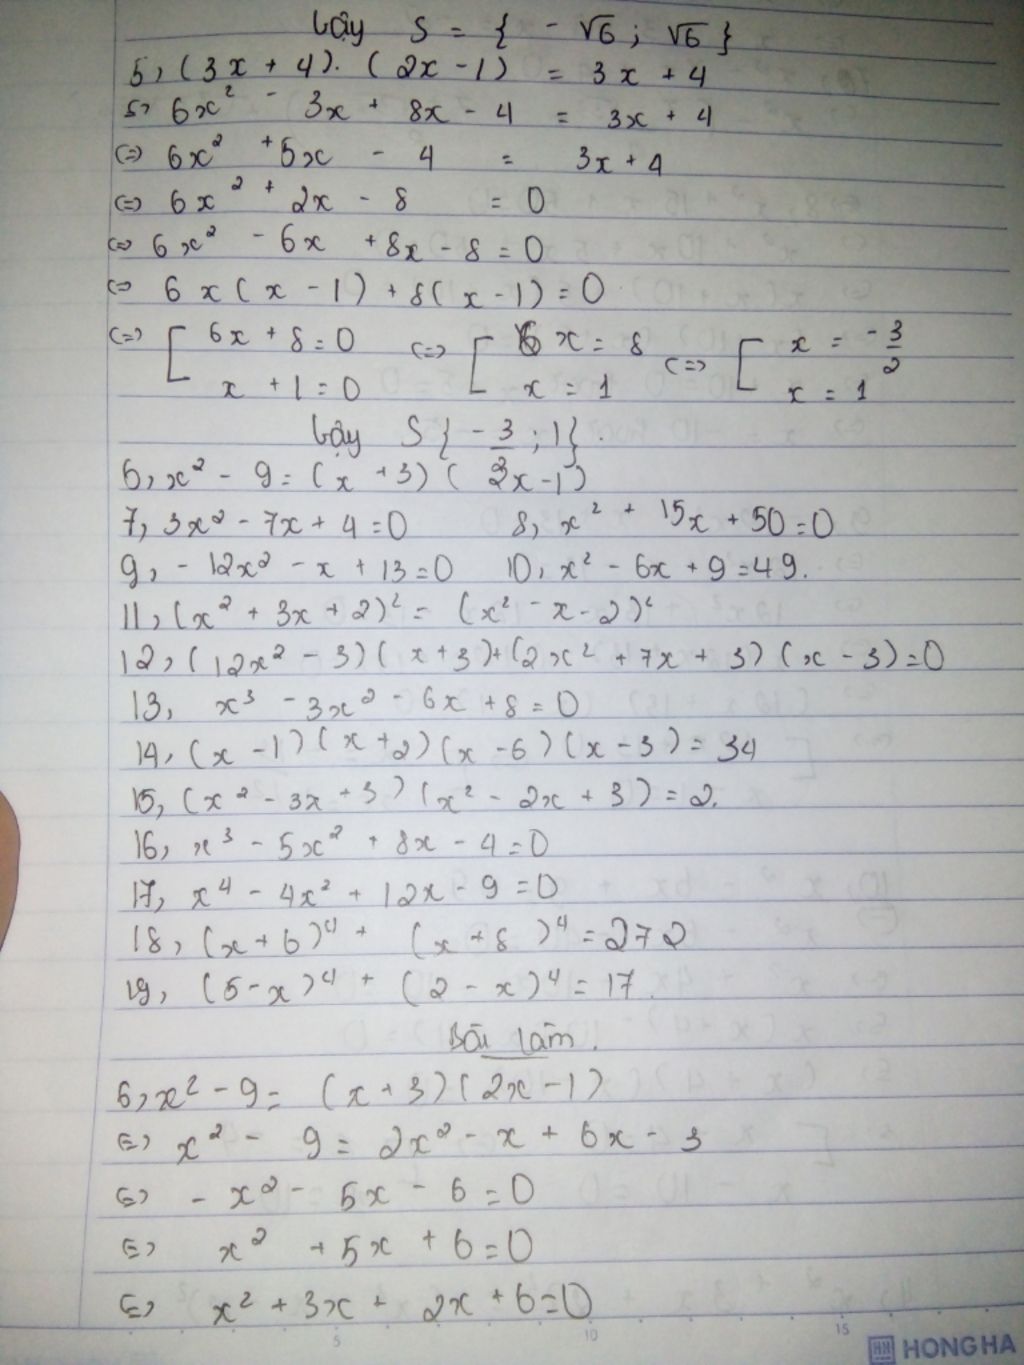 Vậy S = { - √6 ; √6 }
5, (3x + 4). (2x - 1) = 3x + 4
5, 6x² - 3x + 8x - 4 = 3x + 4
(=) 6x² + 5x - 4 = 3x + 4
(=) 6x² + 2x - 8 = 0
(=) 6x² - 6x + 8x - 8 = 0
(=) 6x (x - 1) + 8(x - 1) = 0
(=) [ 6x + 8 = 0 (=) [ 6x = 8 (=) [ x = -3/2
x + 1 = 0 x = 1 x = 1
Vậy S { - 3/2 ; 1 } .
6, x² - 9 = (x + 3) ( 2x - 1)
7, 3x² - 7x + 4 = 0 8, x² + 15x + 50 = 0
9, - 12x² - x + 13 = 0 10, x² - 6x + 9 = 49.
11, (x² + 3x + 2)² = (x² - x - 2)²
12, (12x² - 3) (x + 3) + (2x² + 7x + 3) (x - 3) = 0
13, x³ - 3x² - 6x + 8 = 0
14, (x - 1) (x + 2) (x - 6) (x - 3) = 34
15, (x² - 3x + 3) (x² - 2x + 3) = 2.
16, x³ - 5x² + 8x - 4 = 0
17, x⁴ - 4x² + 12x - 9 = 0
18, (x + 6)⁴ + (x + 8)⁴ = 272
19, (5 - x)⁴ + (2 - x)⁴ = 17.
Bài làm.
6, x² - 9 = (x + 3) (2x - 1)
(=) x² - 9 = 2x² - x + 6x - 3
(=) - x² - 5x - 6 = 0
(=) x² + 5x + 6 = 0
(=) x² + 3x + 2x + 6 = 0
5 10 15
HH HONG HA